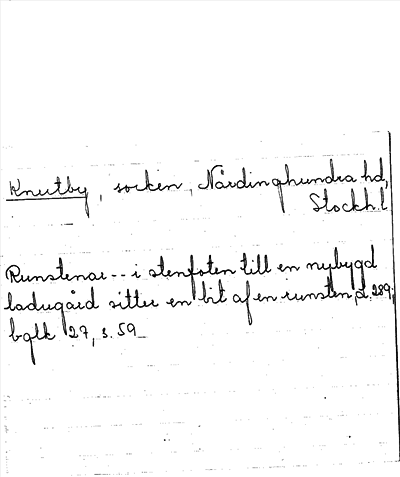 Knutby, socken, Närdinghundra hd,
Stockh.l
Runstenar -- i stenfoten till en nybygd
ladugård sitter en bit af en runsten, d. 289;
bglk 27, s. 59